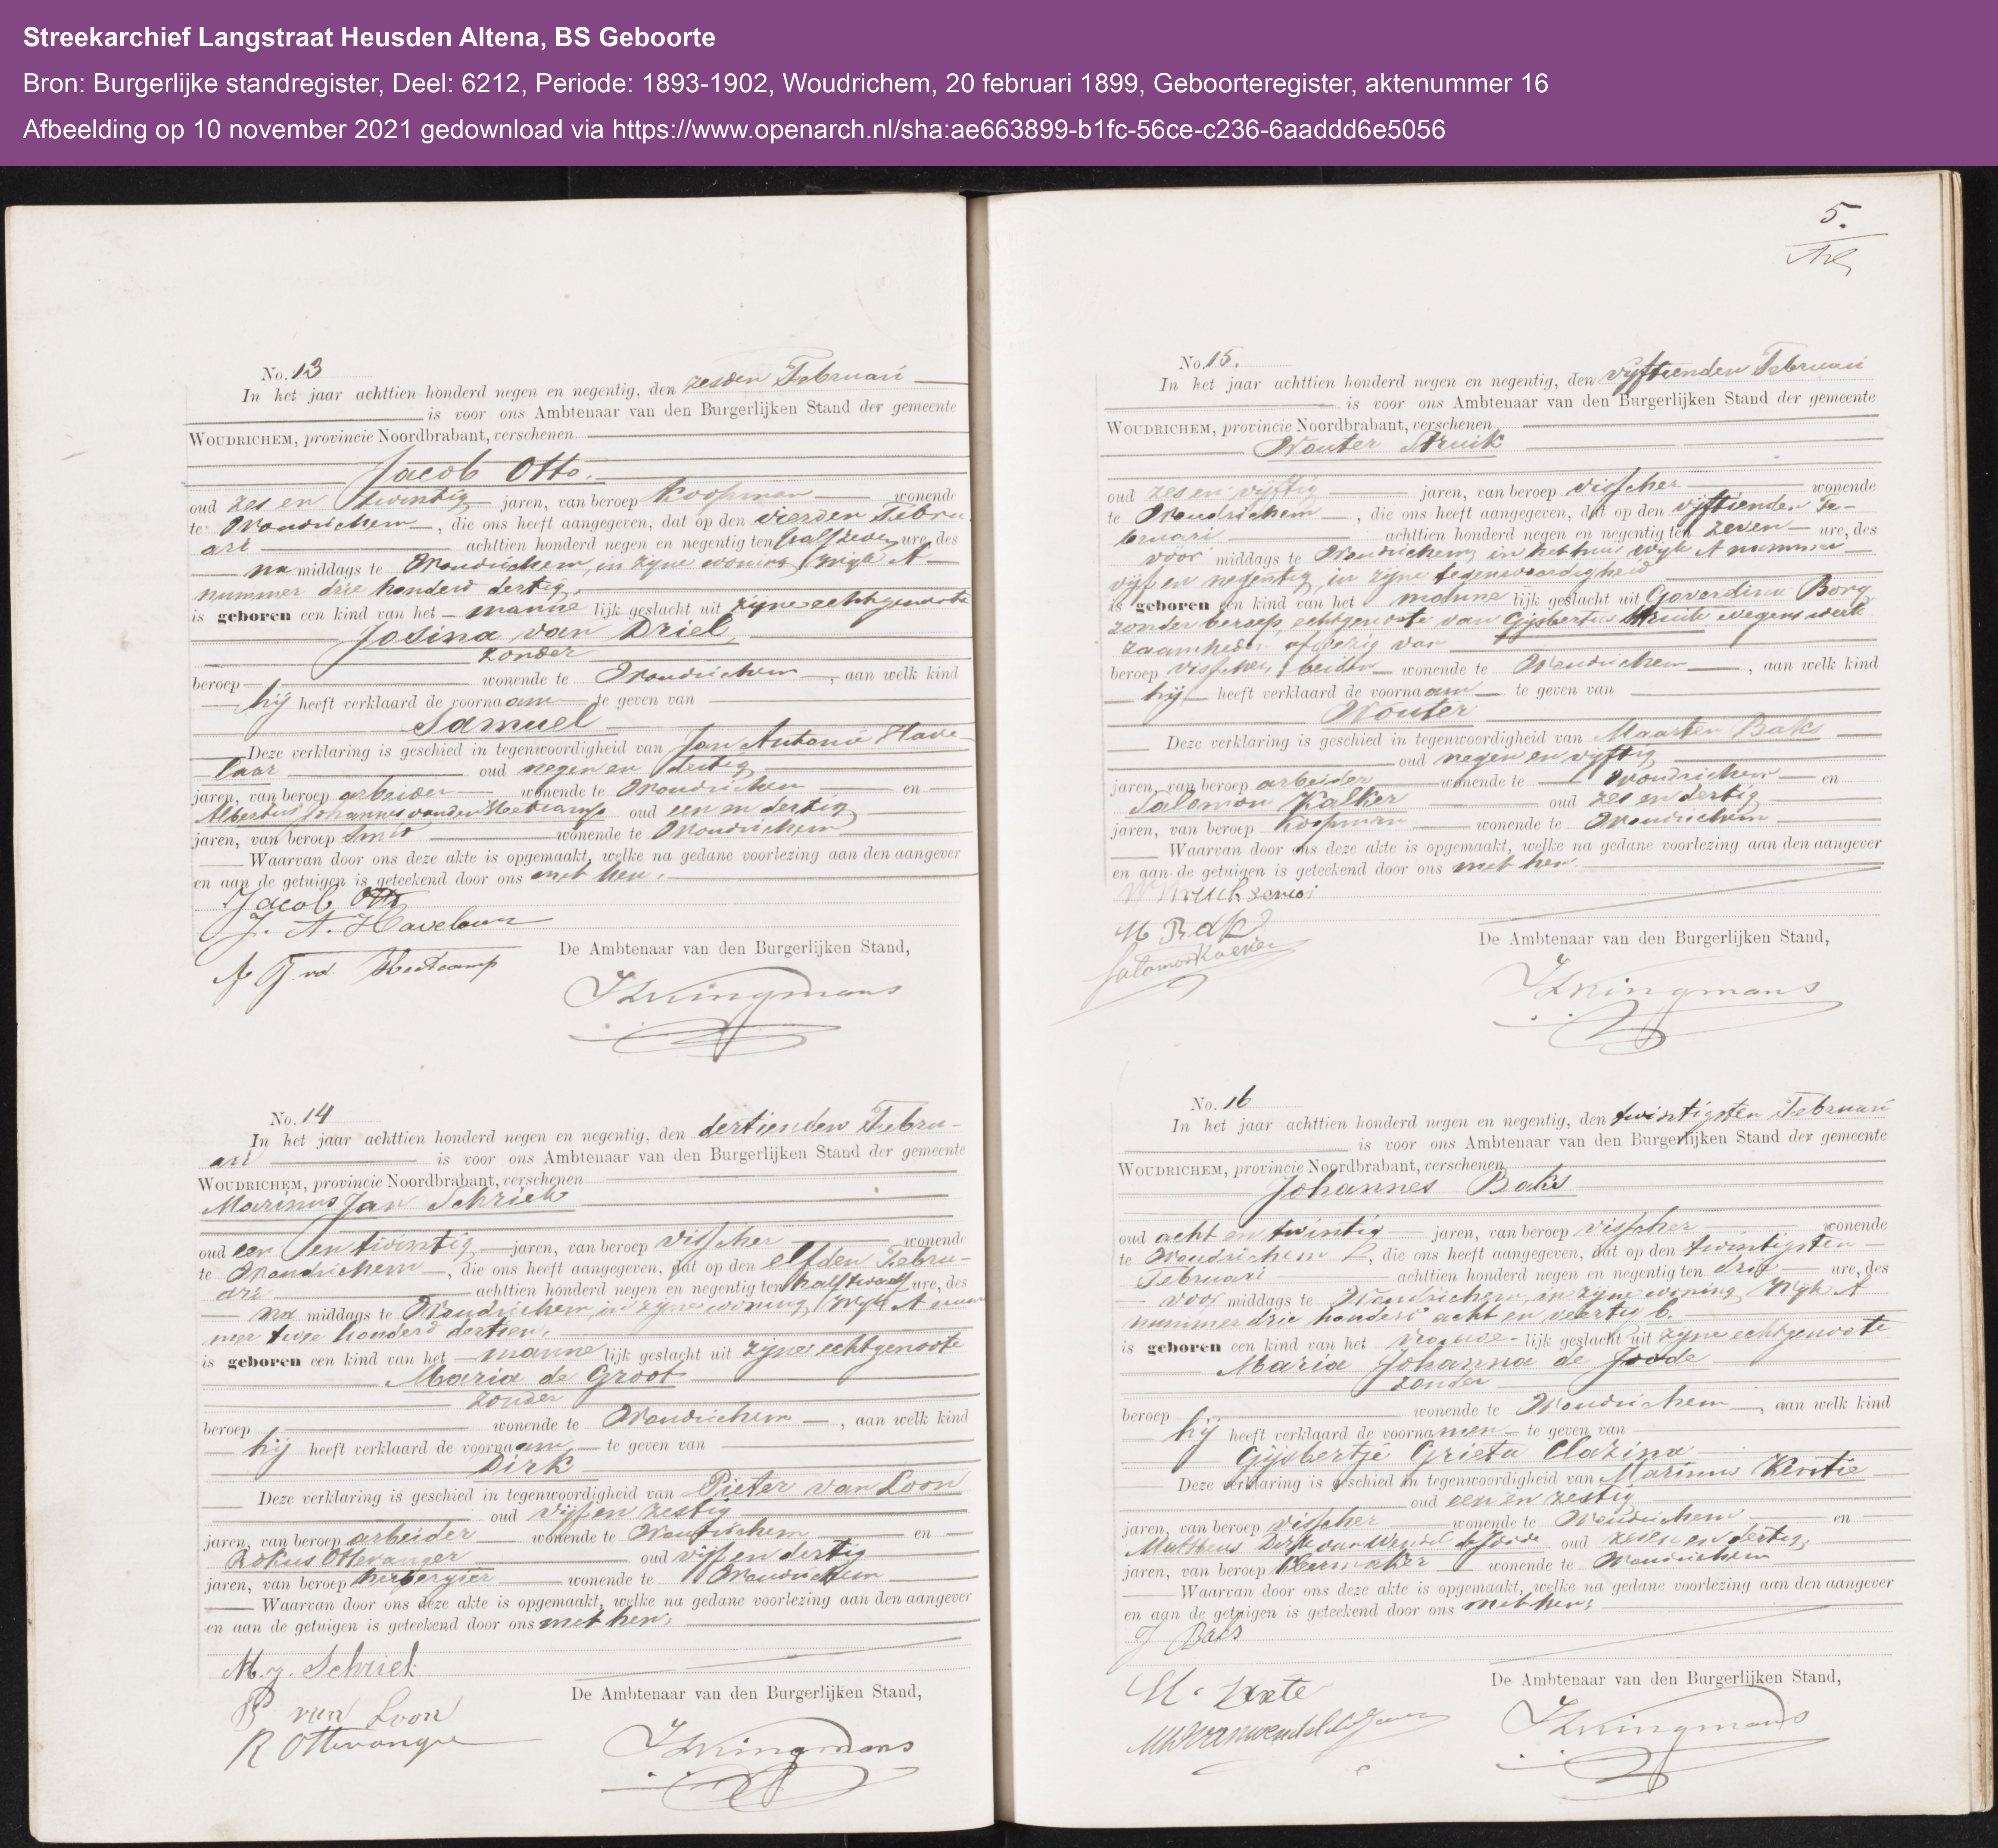 Streekarchief Langstraat Heusden Altena, BS Geboorte
Bron: Burgerlijke standregister, Deel: 6212, Periode: 1893-1902, Woudrichem, 20 februari 1899, Geboorteregister, aktenummer 16
Afbeelding op 10 november 2021 gedownload via https://www.openarch.nl/sha:ae663899-b1fc-56ce-c236-6aaddd6e5056
No. 13
In het jaar achttien honderd negen en negentig, den zesden Februari
is voor ons Ambtenaar van den Burgerlijken Stand der gemeente
WOUDRICHEM, provincie Noordbrabant, verschenen
Jacob Otto.
oud zes en twintig jaren, van beroep Koopman wonende
te Woudrichem, die ons heeft aangegeven, dat op den vierden Febru
ari achttien honderd negen en negentig ten half zeven ure, des
na middags te Woudrichem, in zijne woning, wijk A
nummer drie honderd dertig,
is geboren een kind van het manne lijk geslacht uit zijne echtgenoote
Josina van Driel,
zonder
beroep wonende te Woudrichem, aan welk kind
hij heeft verklaard de voornaam te geven van
Samuel
Deze verklaring is geschied in tegenwoordigheid van Jan Antonie Have
laar oud negen en dertig
jaren, van beroep arbeider wonende te Woudrichem en
Albertus Johannes van den Heetcamp oud een en dertig
jaren, van beroep Smid wonende te Woudrichem
Waarvan door ons deze akte is opgemaakt, welke na gedane voorlezing aan den aangever
en aan de getuigen is geteekend door ons met hen.
Jacob Otto
J. A. Havelaar
A J vd Heetcamp
De Ambtenaar van den Burgerlijken Stand,
No. 14
In het jaar achttien honderd negen en negentig, den dertienden Febru-
ari is voor ons Ambtenaar van den Burgerlijken Stand der gemeente
WOUDRICHEM, provincie Noordbrabant, verschenen
Marinus Jan Schriek
oud een en twintig jaren, van beroep visscher wonende
te Woudrichem, die ons heeft aangegeven, dat op den elfden Febru-
ari achttien honderd negen en negentig ten half twaalf ure, des
na middags te Woudrichem, in zijne woning, Wijk A num
mer twee honderd dertien,
is geboren een kind van het manne lijk geslacht uit zijne echtgenoote
Maria de Groot
zonder
beroep wonende te Woudrichem, aan welk kind
hij heeft verklaard de voornaam te geven van
Dirk
Deze verklaring is geschied in tegenwoordigheid van Pieter van Loon
oud vijf en zestig
jaren, van beroep arbeider wonende te Woudrichem en
Rokus Ottevanger oud vijf en dertig
jaren, van beroep herbergier wonende te Woudrichem
Waarvan door ons deze akte is opgemaakt, welke na gedane voorlezing aan den aangever
en aan de getuigen is geteekend door ons met hen,
M. J. Schriek
P van Loon
R Ottevanger
De Ambtenaar van den Burgerlijken Stand,
5.
No. 15.
In het jaar achttien honderd negen en negentig, den vijftienden Februari
is voor ons Ambtenaar van den Burgerlijken Stand der gemeente
WOUDRICHEM, provincie Noordbrabant, verschenen
Wouter Struik
oud zes en vijftig jaren, van beroep visscher wonende
te Woudrichem, die ons heeft aangegeven, dat op den vijftienden Fe-
bruari achttien honderd negen en negentig ten zeven ure, des
voor middags te Woudrichem, in het huis wijk A nummer
vijf en negentig, in zijne tegenwoordigheid
is geboren een kind van het manne lijk geslacht uit Goverdina Borg
zonder beroep, echtgenoote van Gijsbertus Struik wegens werk
zaamheden afwezig van
beroep visscher, beiden wonende te Woudrichem, aan welk kind
hij heeft verklaard de voornaam te geven van
Wouter
Deze verklaring is geschied in tegenwoordigheid van Maarten Baks
oud negen en vijftig
jaren, van beroep arbeider wonende te Woudrichem en
Salomon Kalker oud zes en dertig
jaren, van beroep Koopman wonende te Woudrichem
Waarvan door ons deze akte is opgemaakt, welke na gedane voorlezing aan den aangever
en aan de getuigen is geteekend door ons met hen.
M Baks
Salomon Kalker
De Ambtenaar van den Burgerlijken Stand,
No. 16
In het jaar achttien honderd negen en negentig, den twintigsten Februari
is voor ons Ambtenaar van den Burgerlijken Stand der gemeente
WOUDRICHEM, provincie Noordbrabant, verschenen
Johannes Baks
oud acht en twintig jaren, van beroep visscher wonende
te Woudrichem, die ons heeft aangegeven, dat op den twintigsten
Februari achttien honderd negen en negentig ten drie ure, des
voor middags te Woudrichem, in zijne woning, Wijk A
nummer drie honderd acht en veertig b.
is geboren een kind van het vrouwe- lijk geslacht uit zijne echtgenoote
Maria Johanna de Joode
zonder
beroep wonende te Woudrichem, aan welk kind
hij heeft verklaard de voornamen te geven van
Gijsbertje Grieta Clazina
Deze verklaring is geschied in tegenwoordigheid van Marinus
oud een en zestig
jaren, van beroep visscher wonende te Woudrichem en
Mattheus Dirk van Wendel de Joode oud zes en dertig,
jaren, van beroep wonende te Woudrichem
Waarvan door ons deze akte is opgemaakt, welke na gedane voorlezing aan den aangever
en aan de getuigen is geteekend door ons met hen,
J Baks
De Ambtenaar van den Burgerlijken Stand,